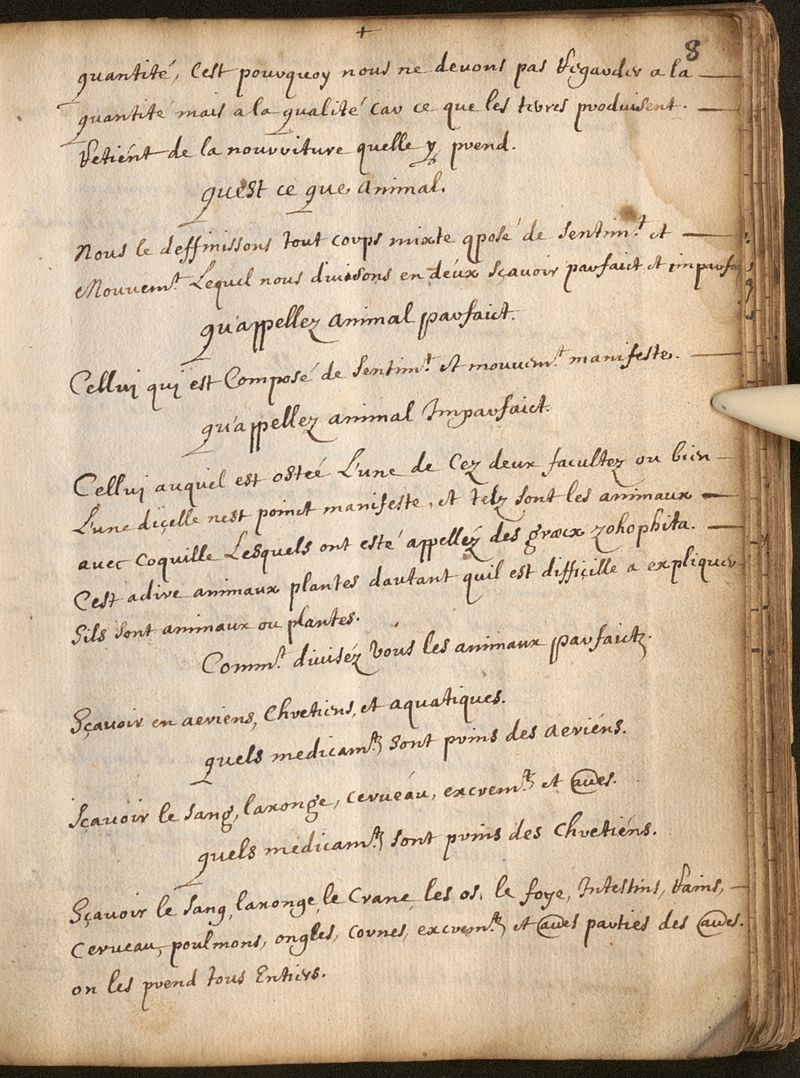 +
8
quantité, C'est pourquoy nous ne devons pas Regarder a la
quantité mais a la qualité Car ce que les terres produisent.
Retiént de la nourriture quelle y prend.
quest ce que Animal.
Nous le deffinissons tout corps mixte qposé de Sentim.t et
Mouvem.t Lequel nous divisons en deux sçavoir parfaict et imparfa
qu'appellez Animal parfaict.
Cellui qui est Composé de Sentim.t et mouvem.t manifeste.
qu'appellez animal Imparfaict.
Cellui auquel est ostée L'une de Cez deux facultez ou bien
L'une diçelle nest poinct manifeste, et telz sont les animaux
avec coquille Lesquels ont esté appelléz des græcx zohophita.
C'est adire animaux plantes dautant quil est difficille a expliquer
Sils sont animaux ou plantes.
Comm.t diviséz vous les animaux parfaictz.
Sçavoir en aeriens, Chretiens, et aquatiques.
quels medicam.tz sont prins des Aeriéns.
Sçavoir le sang, laxonge, cerueáu, excrem.tz et aues.
quels medicam.tz sont prins des Chretiéns.
Sçavoir le sang, laxonge, le Crane, les os, le foye, Intestins, Rains,
Cerueau, poulmons, ongles, cornes, excrem.tz et aues parties des aues.
on les prend tous Entiers.